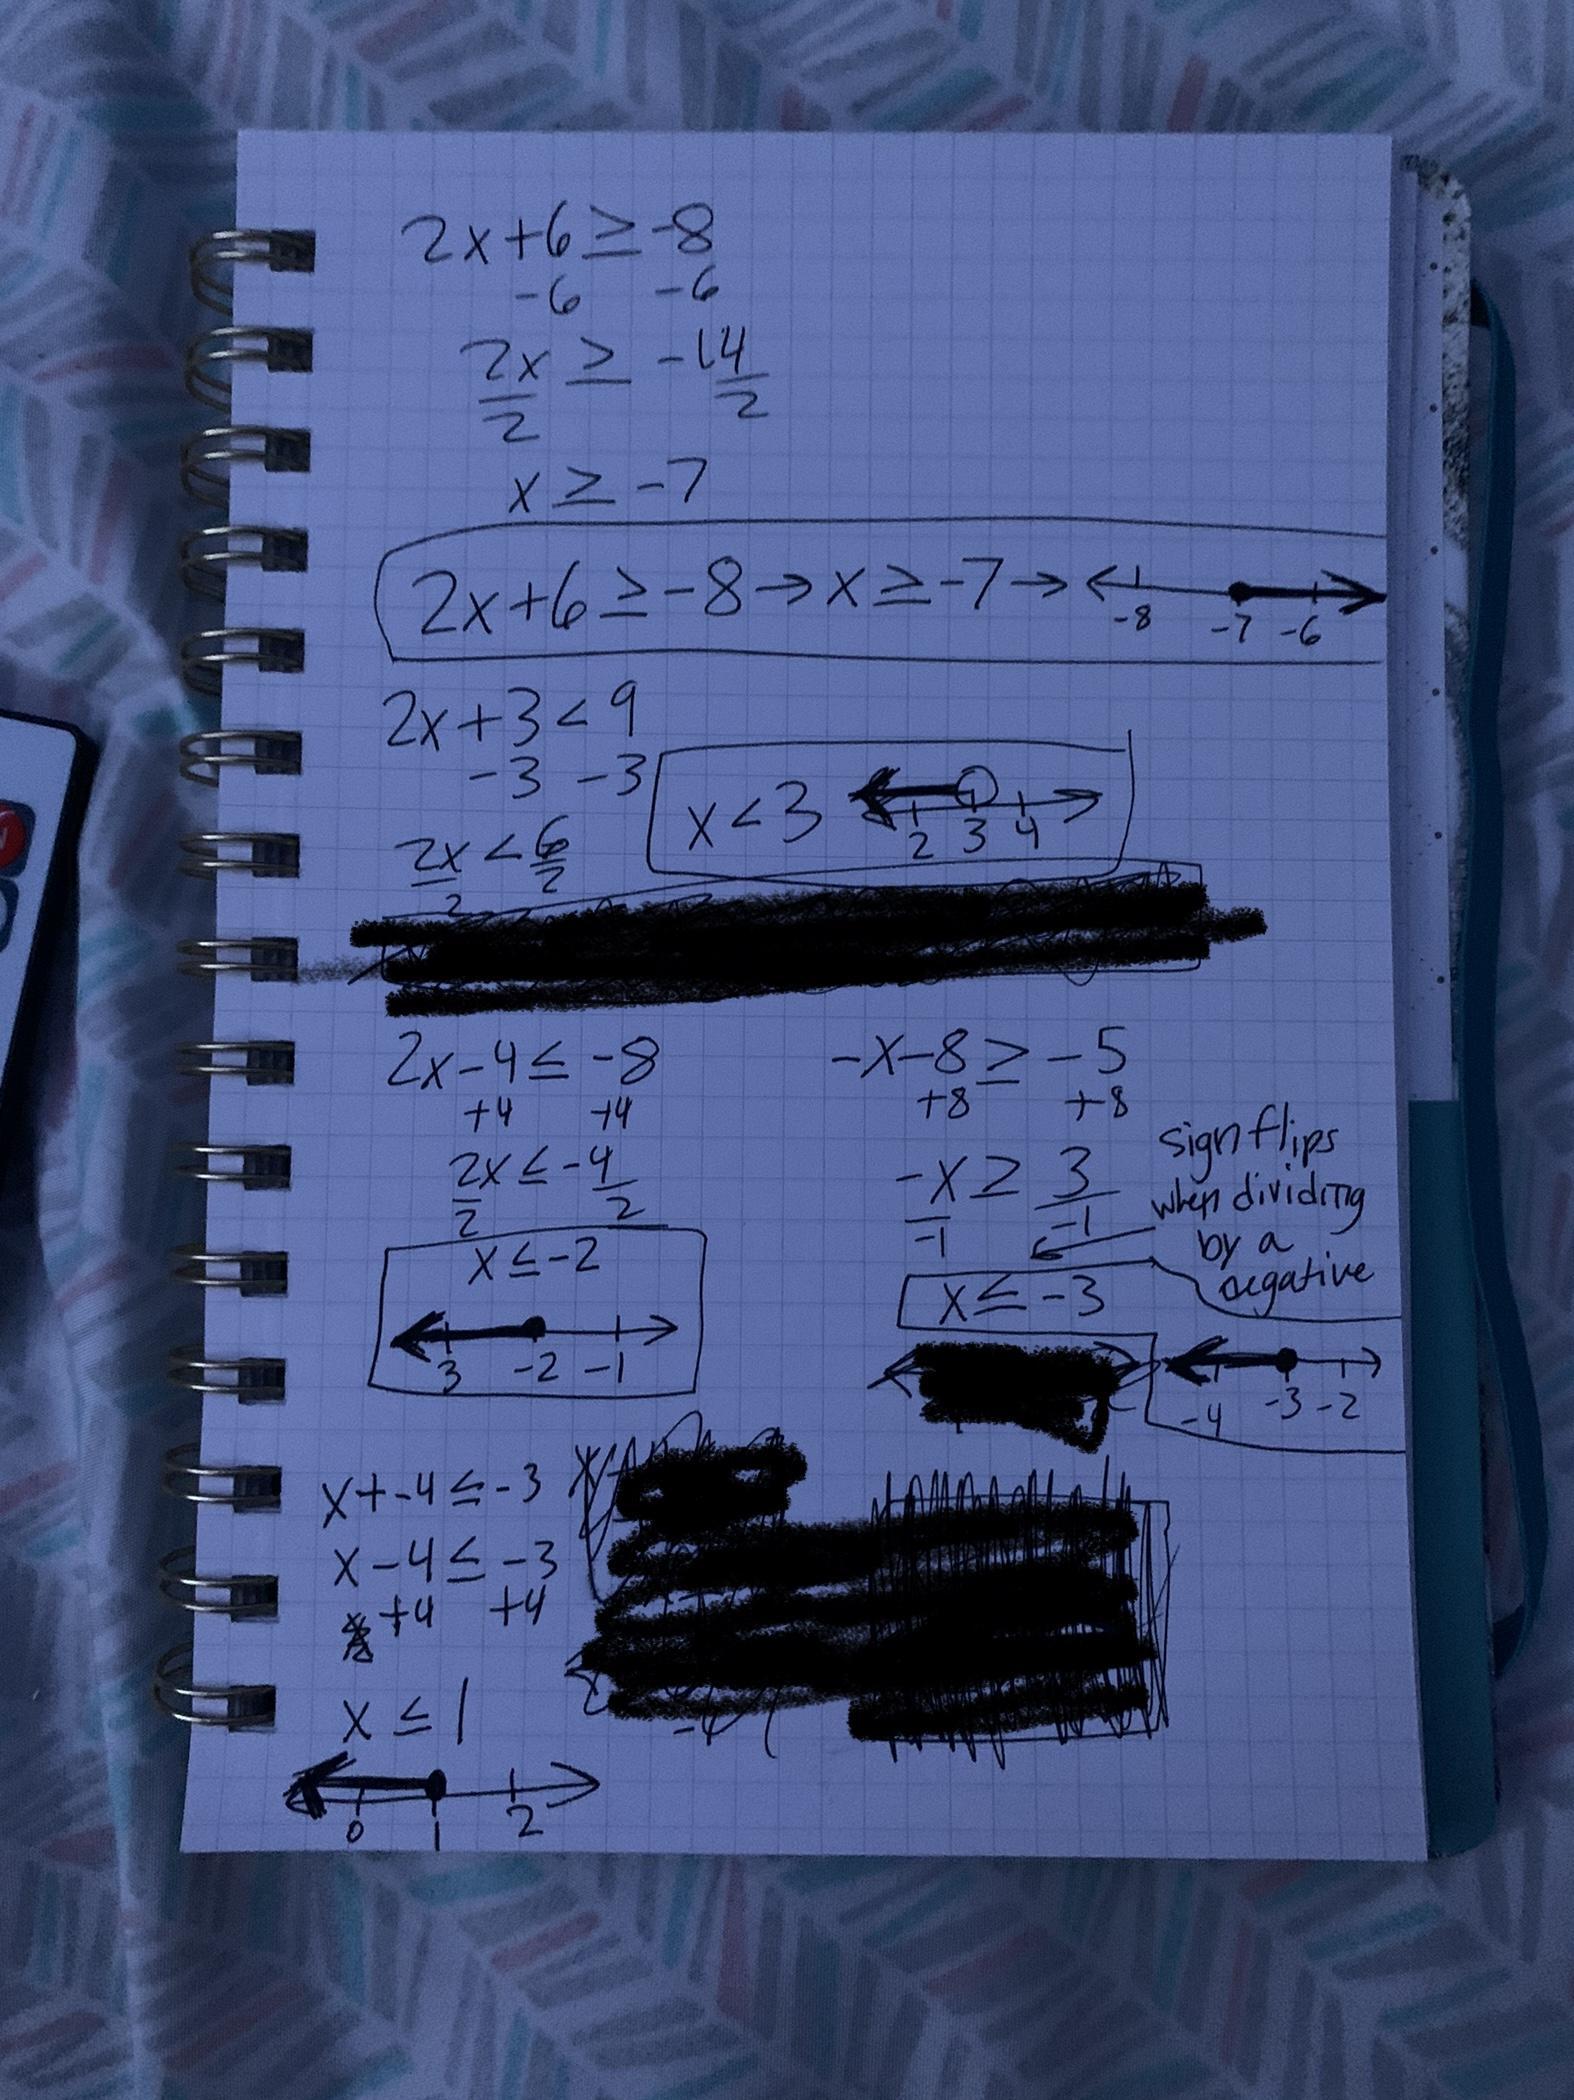 2x+6≥-8
-6 -6
2x ≥ -14
2 2
x ≥ -7
2x+6≥-8→x≥-7→
-8 -7 -6
2x+3<9
-3 -3
2x<6
2 2
x<3
2 3 4
2x-4≤-8
+4 +4
2x≤-4
2 2
x≤-2
3 -2 -1
-x-8≥-5
+8 +8
-x≥3
-1 -1
sign flips
when dividing
by a
negative
x≤-3
-4 -3 -2
x+-4≤-3
x-4≤-3
+4 +4
x≤1
0 1 2